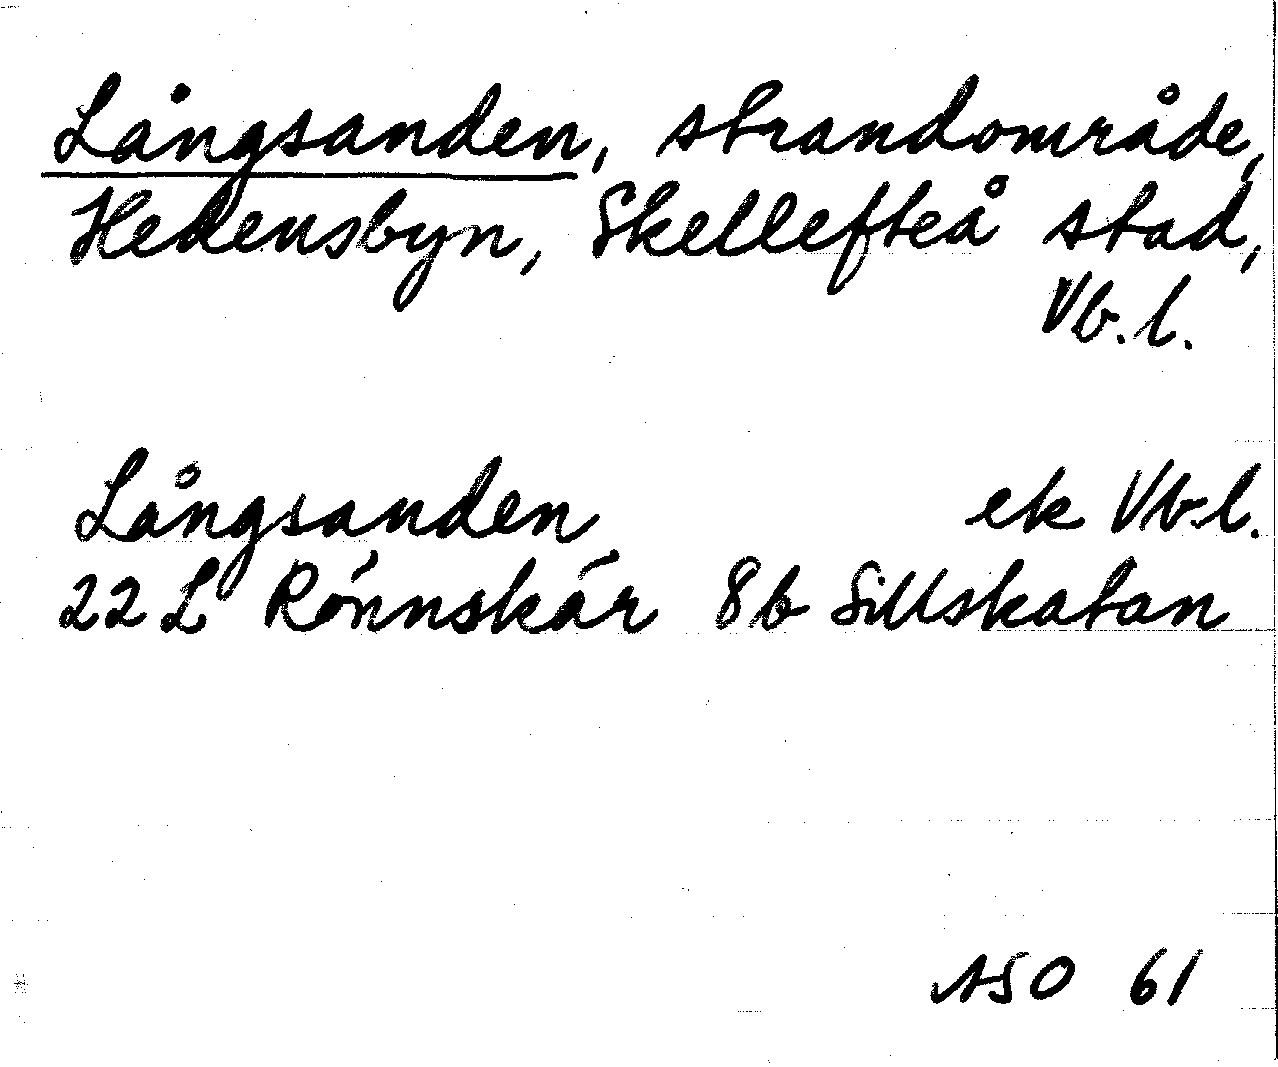 Långsanden, strandområde,
Hedensbyn, Skellefteå stad,
Vb.l.
Långsanden ek Vb.l.
22 L Rönnskär 8b Sillskatan
ASO 61